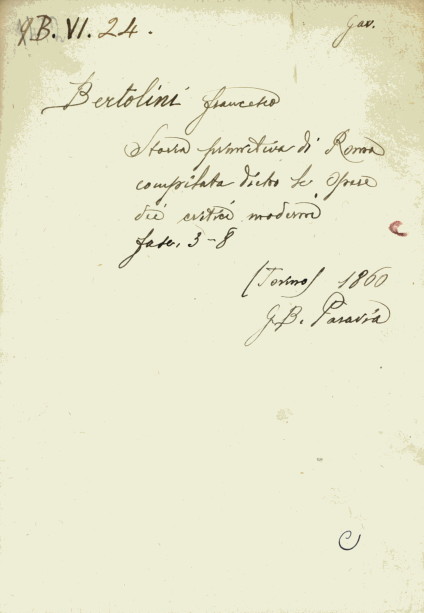 B. VI. 24. Gav.
Bertolini Francesco
Storia primitiva di Roma
compilata dietro le opere
dei critici moderni
fasc. 3-8
(Torino) 1860
G. B. Paravia
C